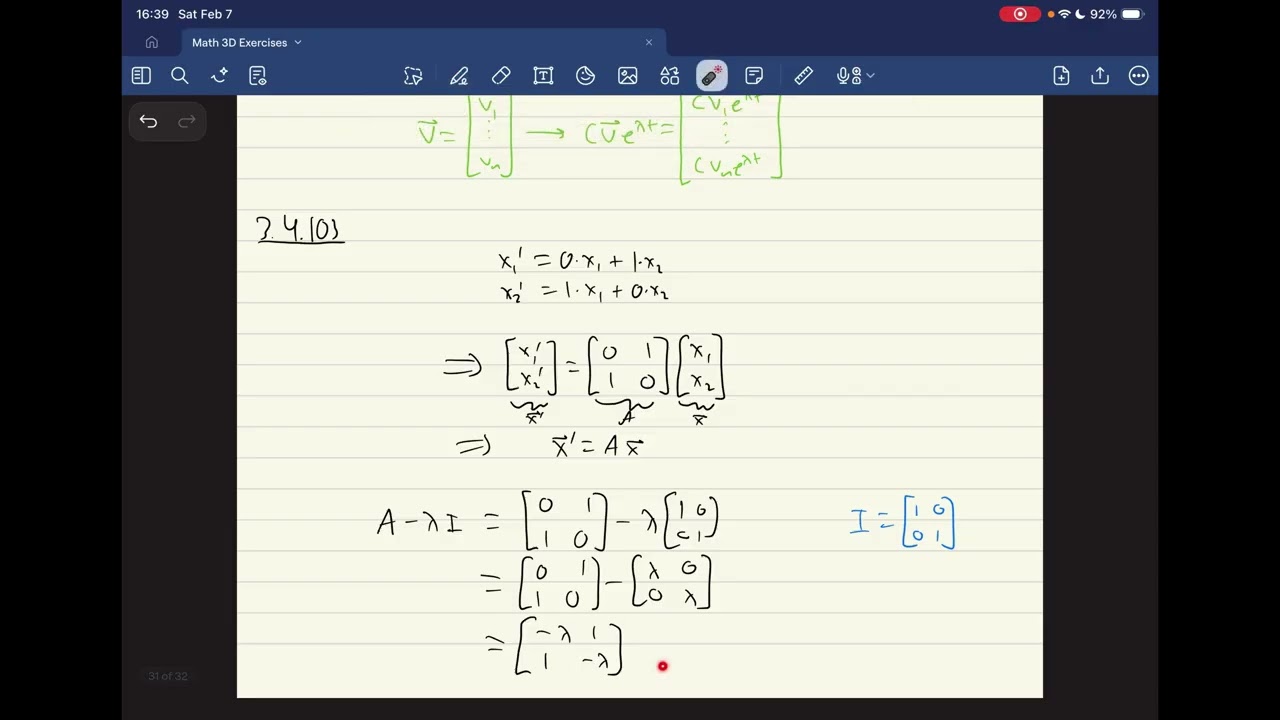 16:39 Sat Feb 7
92%
Math 3D Exercises
V⃗ = [v₁ ⋮ vₙ] → C V⃗ e^{λt} = [C v₁ e^{λt} ⋮ C vₙ e^{λt}]
3.4.103
x₁' = 0·x₁ + 1·x₂
x₂' = 1·x₁ + 0·x₂
⇒ [x₁' ; x₂'] = [0 1 ; 1 0] [x₁ ; x₂]
x⃗' A x⃗
⇒ x⃗' = A x⃗
A - λI = [0 1 ; 1 0] - λ [1 0 ; 0 1] I = [1 0 ; 0 1]
= [0 1 ; 1 0] - [λ 0 ; 0 λ]
= [-λ 1 ; 1 -λ]
31 of 32